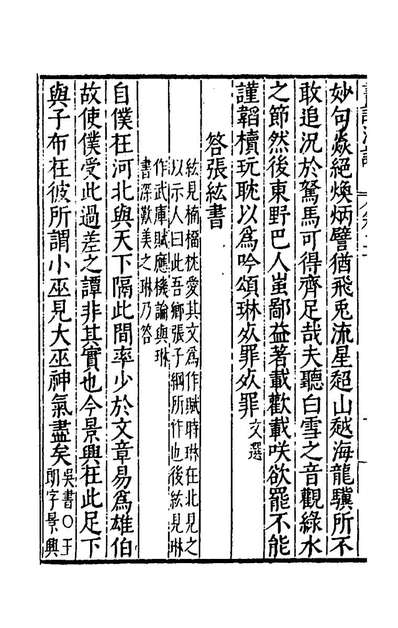 妙句焱絕煥炳譬猶飛兎流星超山越海龍驥所不
敢追況於駑馬可得齊足哉夫聽白雪之音觀綠水
之節然後東野巴人蚩鄙益著載歡載咲欲罷不能
謹韞櫝玩耽以爲吟頌琳死罪死罪文選
答張紘書
紘見柟榴枕愛其文爲作賦時琳在北見之
以示人曰此吾鄉張子綱所作也後紘見琳
作武庫賦應機論與琳
書深歎美之琳乃答
自僕在河北與天下隔此間率少於文章易爲雄伯
故使僕受此過差之譚非其實也今景興在此足下
與子布在彼所謂小巫見大巫神氣盡矣吳書○王
朗字景興